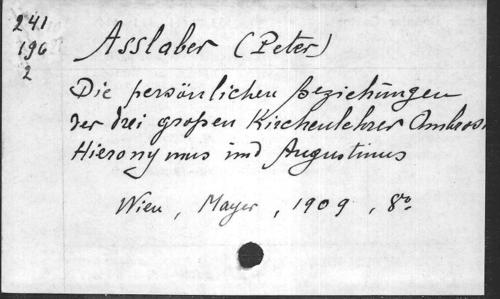 241
196
2
Asslaber (Peter)
Die persönlichen Beziehungen
der drei großen Kirchenlehrer Ambrosi
Hieronymus und Augustinus
Wien, Mayer, 1909, 8º